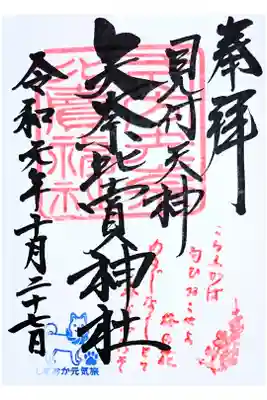 奉拝
見付天神
矢奈比賣神社
令和元年十月二十七日
こちふかば
匂ひおこせよ
梅の花
あるじなしとて
しずおか元気旅